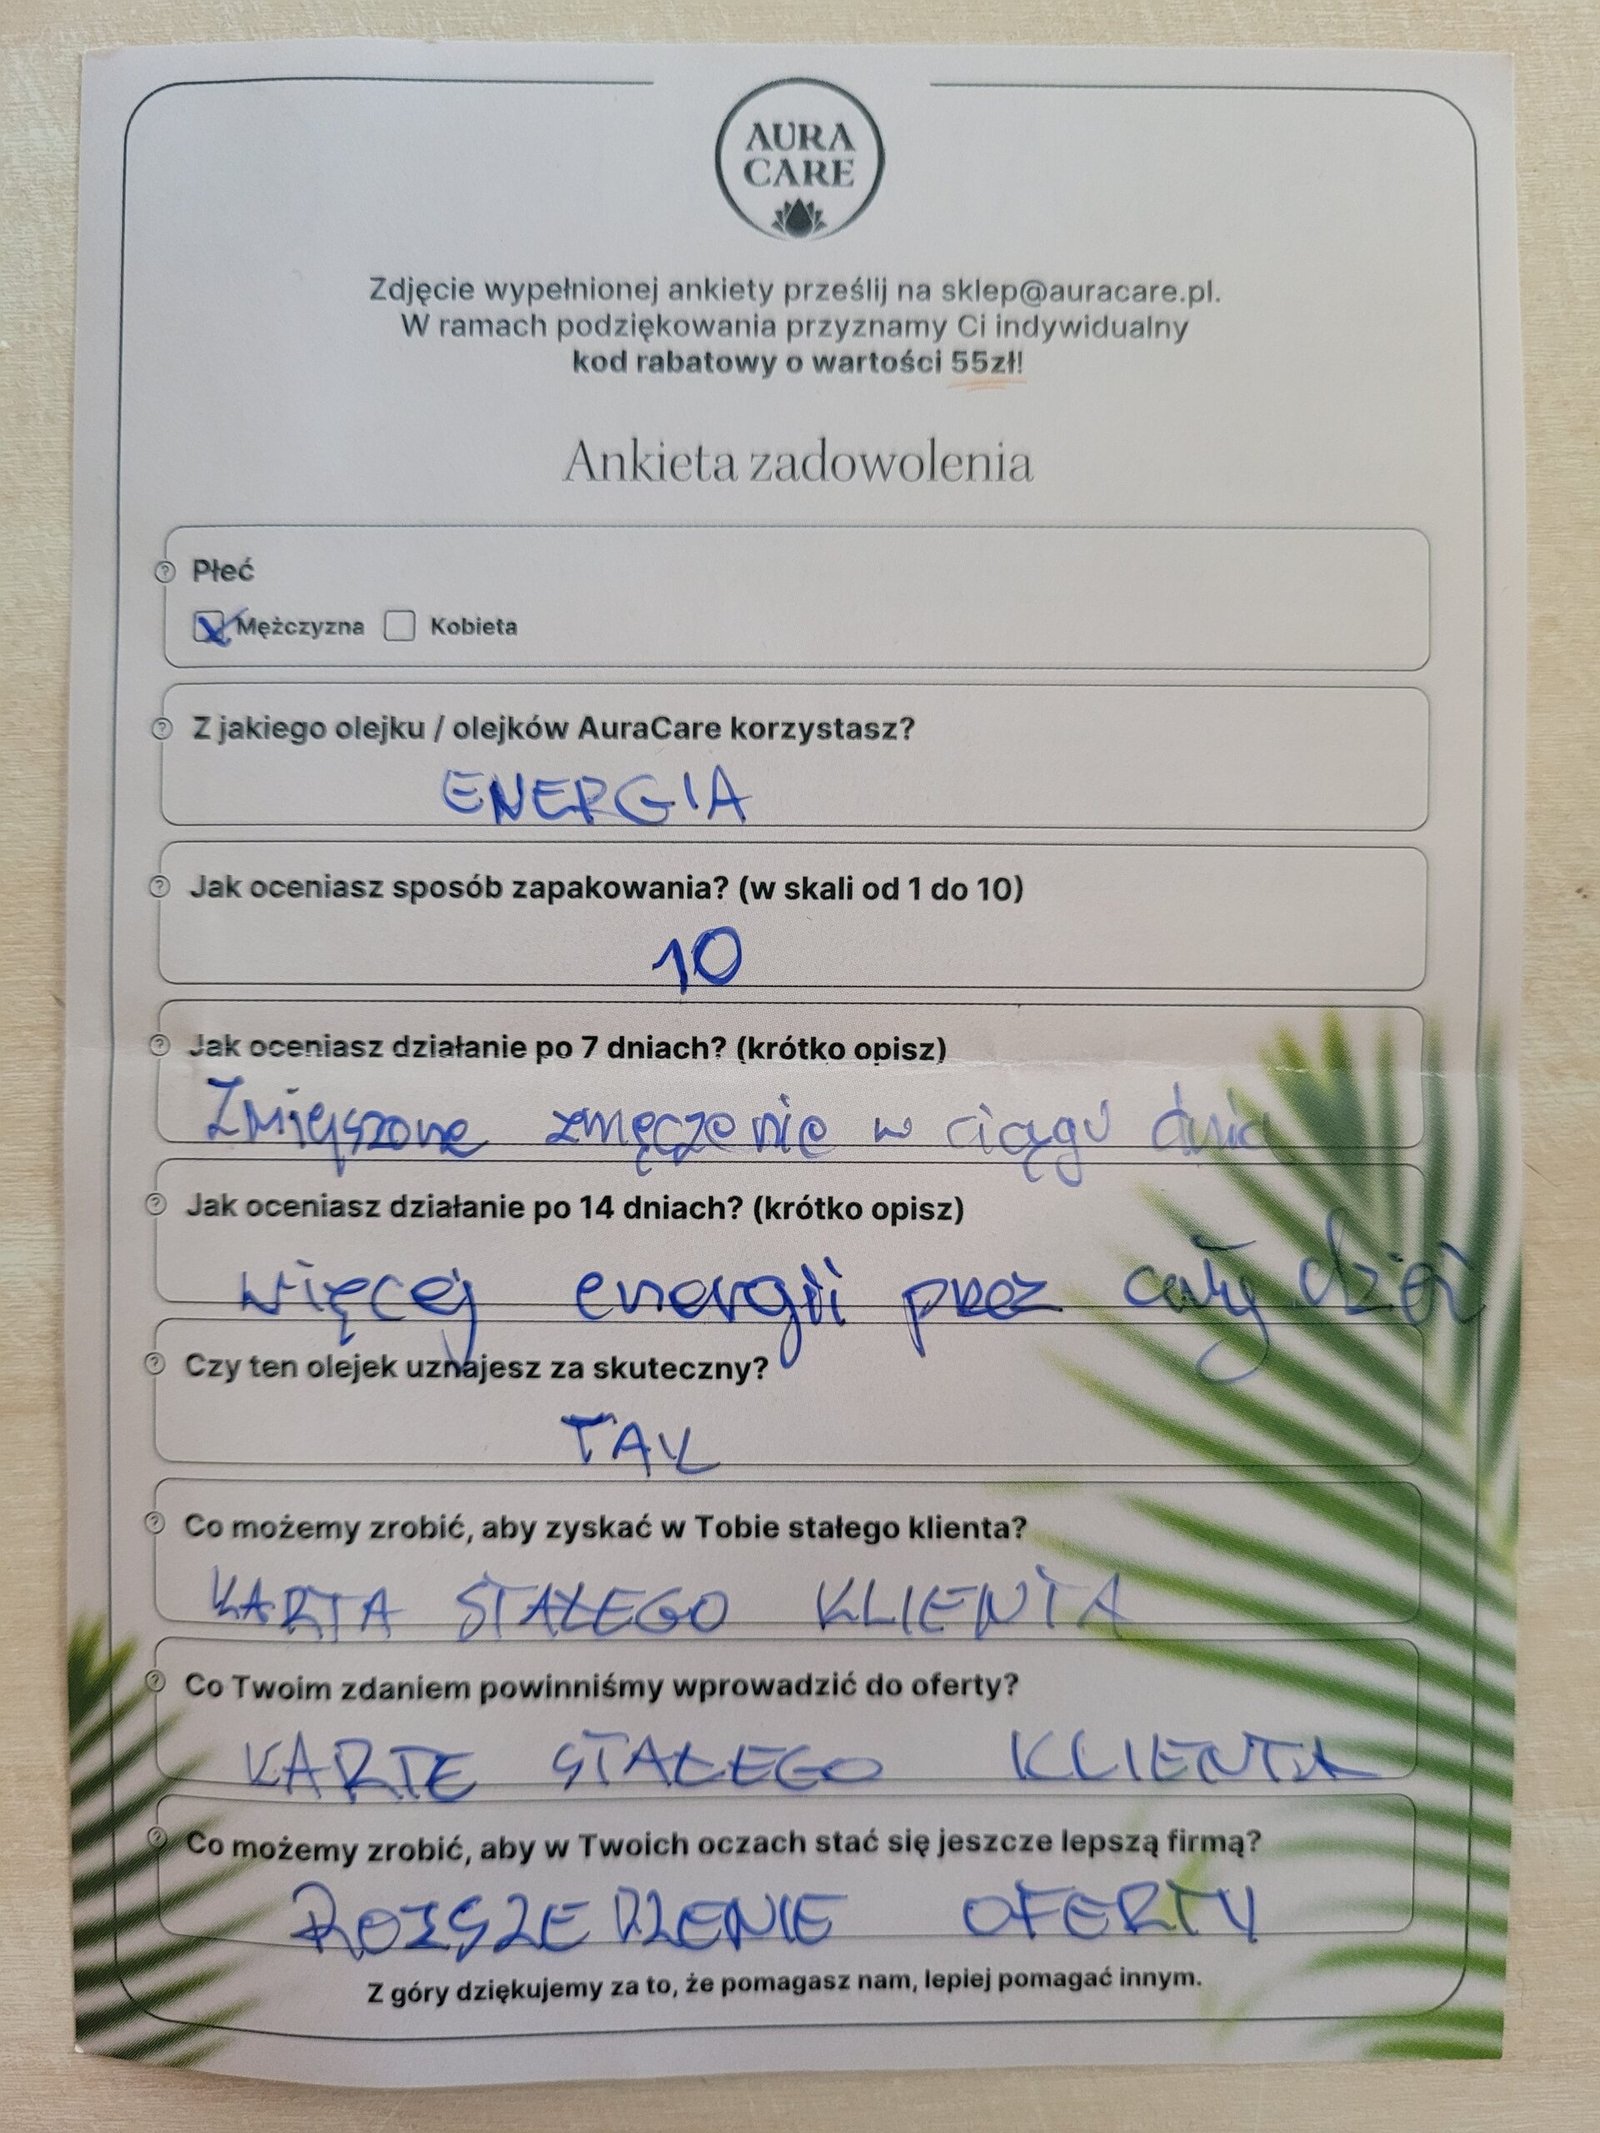 AURA
CARE
Zdjęcie wypełnionej ankiety prześlij na sklep@auracare.pl.
W ramach podziękowania przyznamy Ci indywidualny
kod rabatowy o wartości 55zł!
Ankieta zadowolenia
Płeć
Mężczyzna Kobieta
Z jakiego olejku / olejków AuraCare korzystasz?
ENERGIA
Jak oceniasz sposób zapakowania? (w skali od 1 do 10)
10
Jak oceniasz działanie po 7 dniach? (krótko opisz)
Zmięjszone zmęczenie w ciągu dnia
Jak oceniasz działanie po 14 dniach? (krótko opisz)
więcej energii przez cały dzień
Czy ten olejek uznajesz za skuteczny?
TAK
Co możemy zrobić, aby zyskać w Tobie stałego klienta?
KARTA STAŁEGO KLIENTA
Co Twoim zdaniem powinniśmy wprowadzić do oferty?
KARTE STAŁEGO KLIENTA
Co możemy zrobić, aby w Twoich oczach stać się jeszcze lepszą firmą?
ROZSZERZENIE OFERTY
Z góry dziękujemy za to, że pomagasz nam, lepiej pomagać innym.